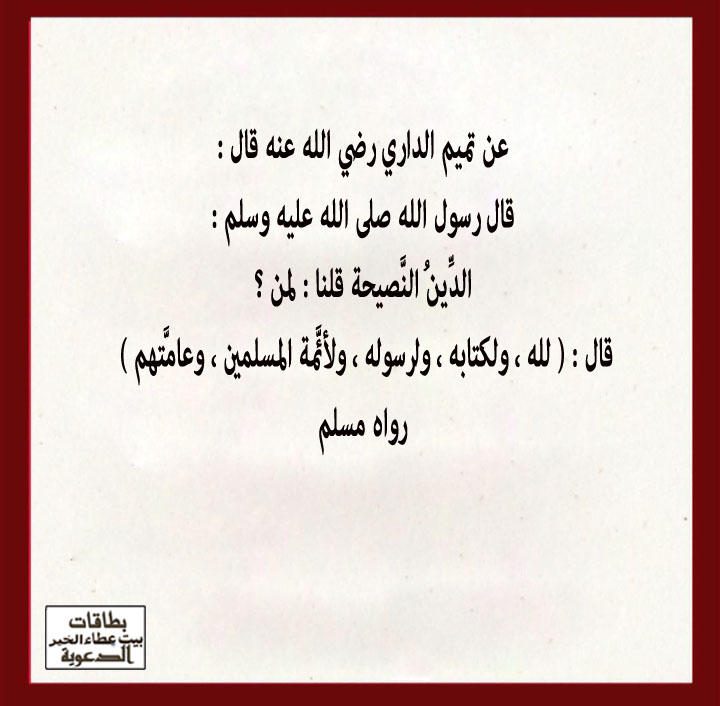 عن تميم الداري رضي الله عنه قال :
قال رسول الله صلى الله عليه وسلم :
الدِّينُ النَّصيحة قلنا : لمن ؟
قال : ( لله ، ولكتابه ، ولرسوله ، ولأئمَّة المسلمين ، وعامَّتهم )
رواه مسلم
بطاقات
بيت عطاء الخير
الدعوية